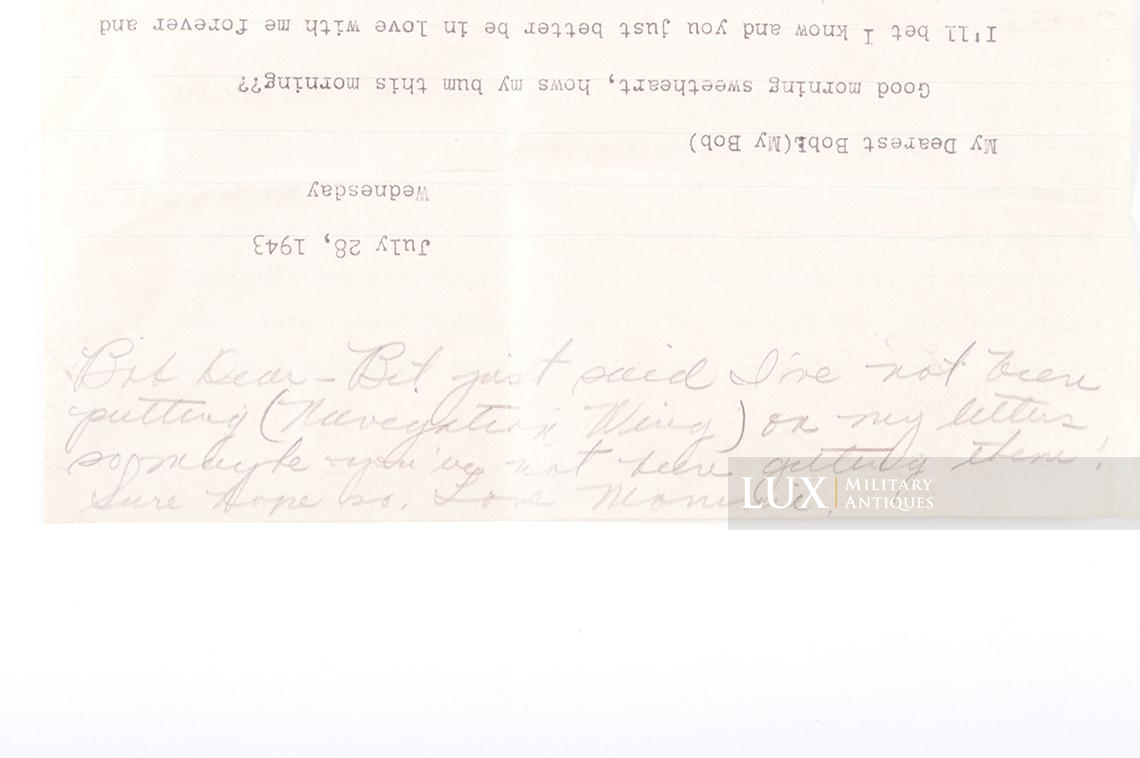 July 28, 1943
Wednesday
My Dearest Bob(My Bob)
Good morning sweetheart, hows my bum this morning??
I'll bet I know and you just better be in love with me forever and
Bob Dear - Bil just said I've not been
putting (Navegation Wing) on my letters
so maybe you've not been getting them!
Sure hope so. Love
LUX MILITARY
ANTIQUES